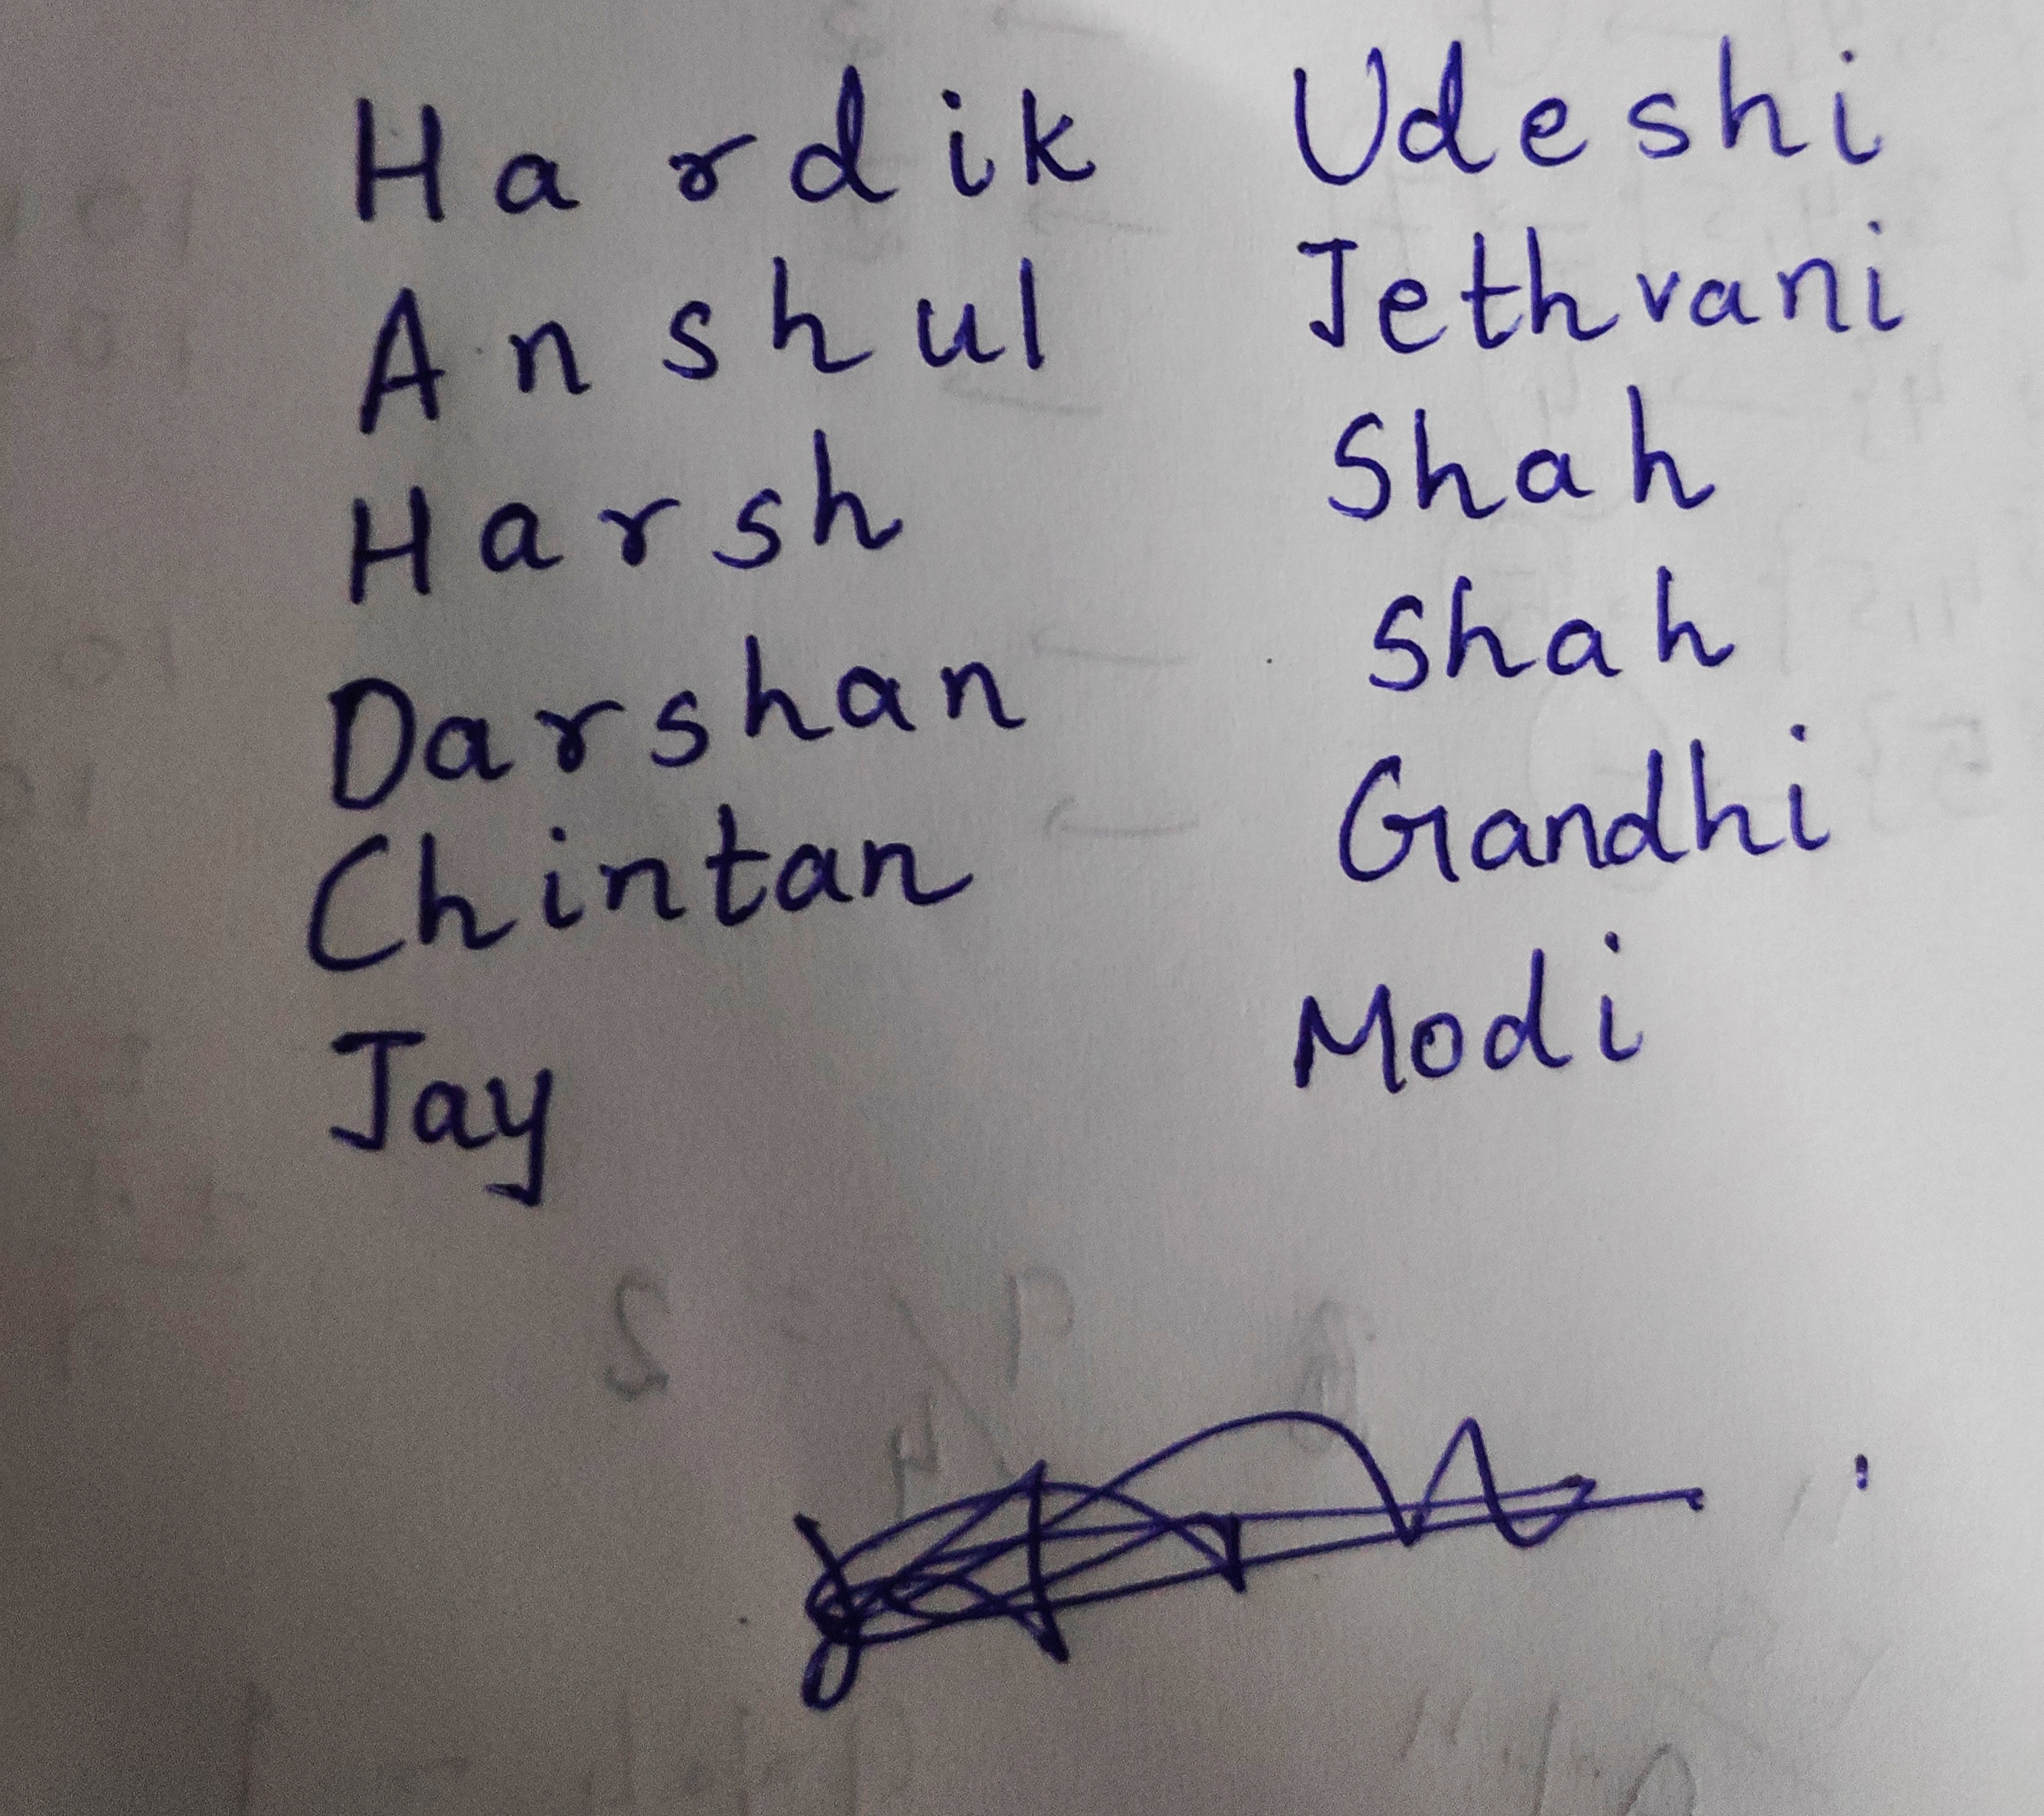 Hardik Udeshi
Anshul Jethvani
Harsh Shah
Darshan Shah
Chintan Gandhi
Jay Modi